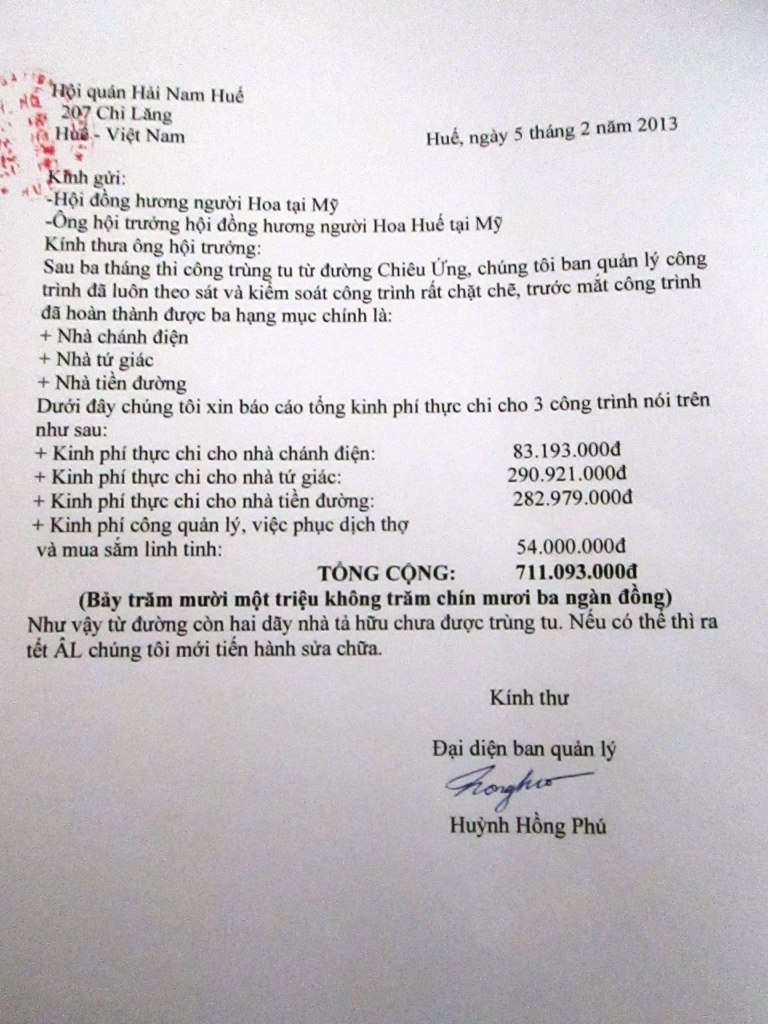 Hội quán Hải Nam Huế
207 Chi Lăng
Huế - Việt Nam
Huế, ngày 5 tháng 2 năm 2013
Kính gửi:
-Hội đồng hương người Hoa tại Mỹ
-Ông hội trưởng hội đồng hương người Hoa Huế tại Mỹ
Kính thưa ông hội trưởng:
Sau ba tháng thi công trùng tu từ đường Chiêu Ứng, chúng tôi ban quản lý công
trình đã luôn theo sát và kiểm soát công trình rất chặt chẽ, trước mắt công trình
đã hoàn thành được ba hạng mục chính là:
+ Nhà chánh điện
+ Nhà tứ giác
+ Nhà tiền đường
Dưới đây chúng tôi xin báo cáo tổng kinh phí thực chi cho 3 công trình nói trên
như sau:
+ Kinh phí thực chi cho nhà chánh điện: 83.193.000đ
+ Kinh phí thực chi cho nhà tứ giác: 290.921.000đ
+ Kinh phí thực chi cho nhà tiền đường: 282.979.000đ
+ Kinh phí công quản lý, việc phục dịch thợ
và mua sắm linh tinh: 54.000.000đ
TỔNG CỘNG: 711.093.000đ
(Bảy trăm mười một triệu không trăm chín mươi ba ngàn đồng)
Như vậy từ đường còn hai dãy nhà tả hữu chưa được trùng tu. Nếu có thể thì ra
tết ÂL chúng tôi mới tiến hành sửa chữa.
Kính thư
Đại diện ban quản lý
Huỳnh Hồng Phú